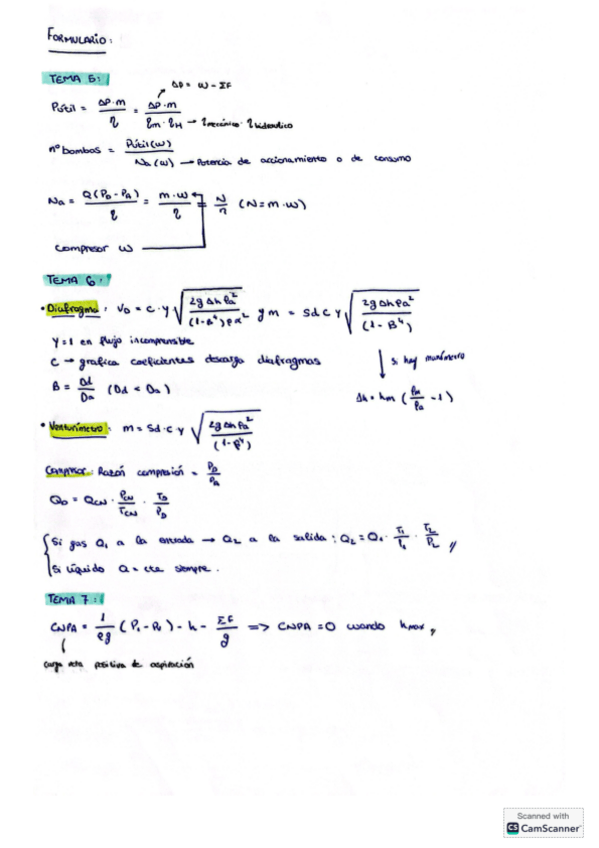 FORMULARIO:
TEMA 5:
ΔP = W - ΣF
Pútil = ΔP·m / η = ΔP·m / ηm·ηH → ηmecánico · ηhidráulico
nº bombas = Pútil(w) / Na(w) → Potencia de accionamiento o de consumo
Na = Q(PD - PA) / η = m·w / η = N / η (N = m·w)
Compresor w
TEMA 6:
• Diafragma: V0 = C·Y √(2gΔhρa² / (1-B⁴)ρx²) y m = Sd C Y √(2gΔhρa² / (1-B⁴))
Y=1 en flujo incompresible
C → grafica coeficientes descarga diafragmas
si hay manómetro
B = Dd / Da (Dd < Da)
Δh = hm (ρm / ρa - 1)
• Venturímetro: m = Sd·C·Y √(2gΔhρa² / (1-B⁴))
Compresor: Razón compresión = PD / PA
QD = QCN · PCN / TCN · TD / PD
Si gas Q1 a la entrada → Q2 a la salida: Q2 = Q1 ·
Si líquido Q = cte siempre.
TEMA 7:
CNPA = 1 / ρg (P1 - Pv) - h - ΣF / g => CNPA = 0 cuando hmax,
carga neta positiva de aspiración
Scanned with
CS CamScanner